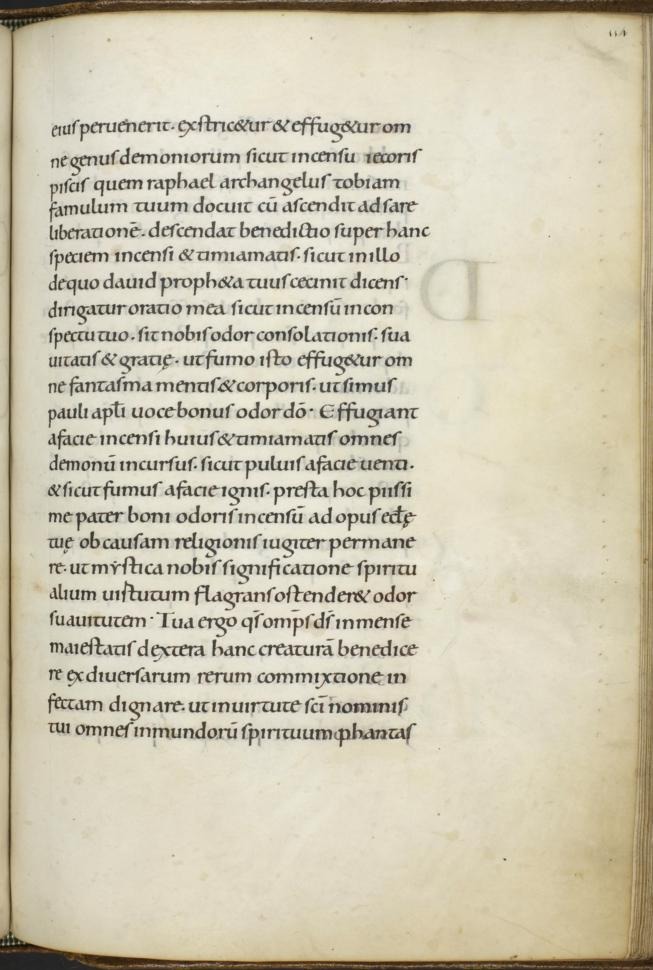 eius peruenerit. exstric&ur & effug&ur om
ne genus demoniorum sicut incensu iecoris
piscis quem raphael archangelus tobiam
famulum tuum docuit cū ascendit ad sare
liberationē. descendat benedictio super hanc
speciem incensi & timiamatis. sicut in illo
de quo dauid proph&a tuus cecinit dicens.
dirigatur oratio mea sicut incensū in con
spectu tuo. sit nobis odor consolationis. sua
uitatis & gratię. ut fumo isto effug&ur om
ne fantasma mentis & corporis. ut simus
pauli apłi uoce bonus odor dō. Effugiant
a facie incensi huius & timiamatis omnes
demonū incursus. sicut puluis a facie uenti.
& sicut fumus a facie ignis. presta hoc piissi
me pater boni odoris incensū ad opus ecłę
tuę ob causam religionis iugiter permane
re. ut mẏstica nobis significatione spiritu
alium uirtutum flagrans ostender& odor
suauitutem. Tua ergo qs omps ds inmense
maiestatis dextera hanc creaturā benedice
re ex diuersarum rerum commixtione in
fectam dignare. ut in uirtute scī nominis
tui omnes inmundorū spirituum phantas